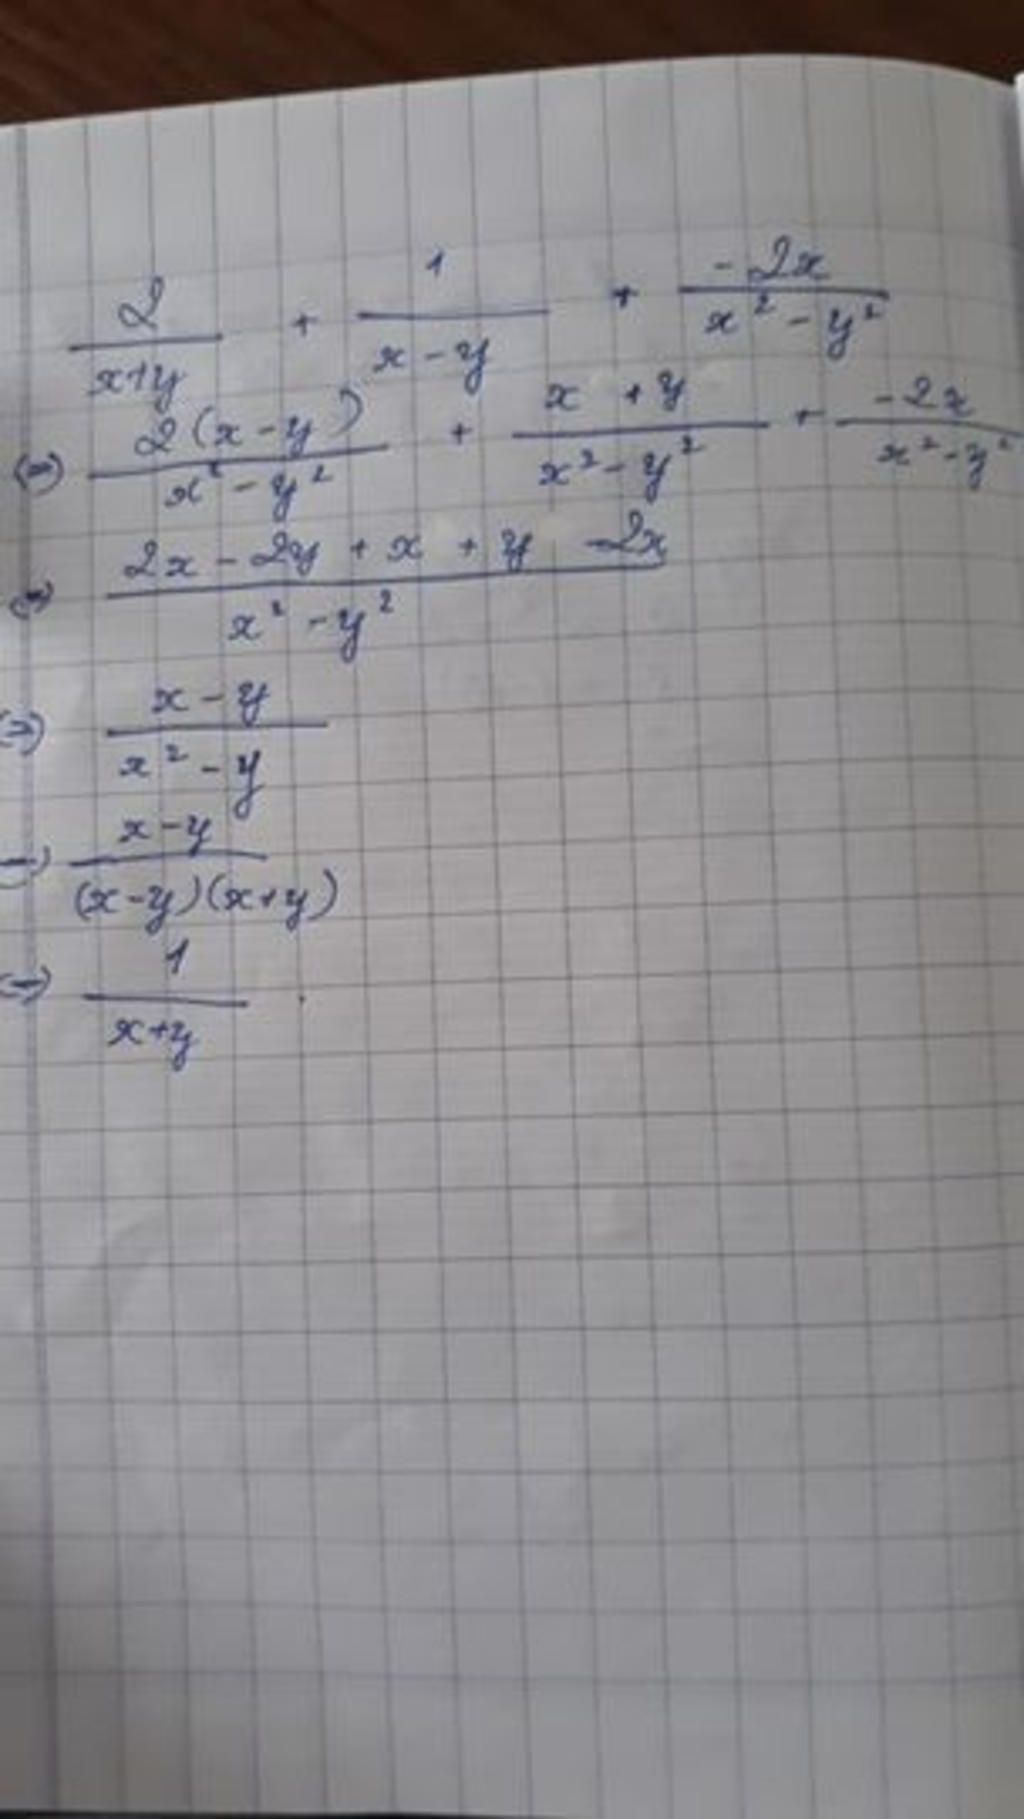 2/(x+y) + 1/(x-y) + -2x/(x²-y²)
(=) 2(x-y)/(x²-y²) + x+y/(x²-y²) + -2x/(x²-y²)
(=) 2x-2y+x+y-2x/(x²-y²)
(=) x-y/(x²-y)
(=) x-y/(x-y)(x+y)
(=) 1/(x+y)